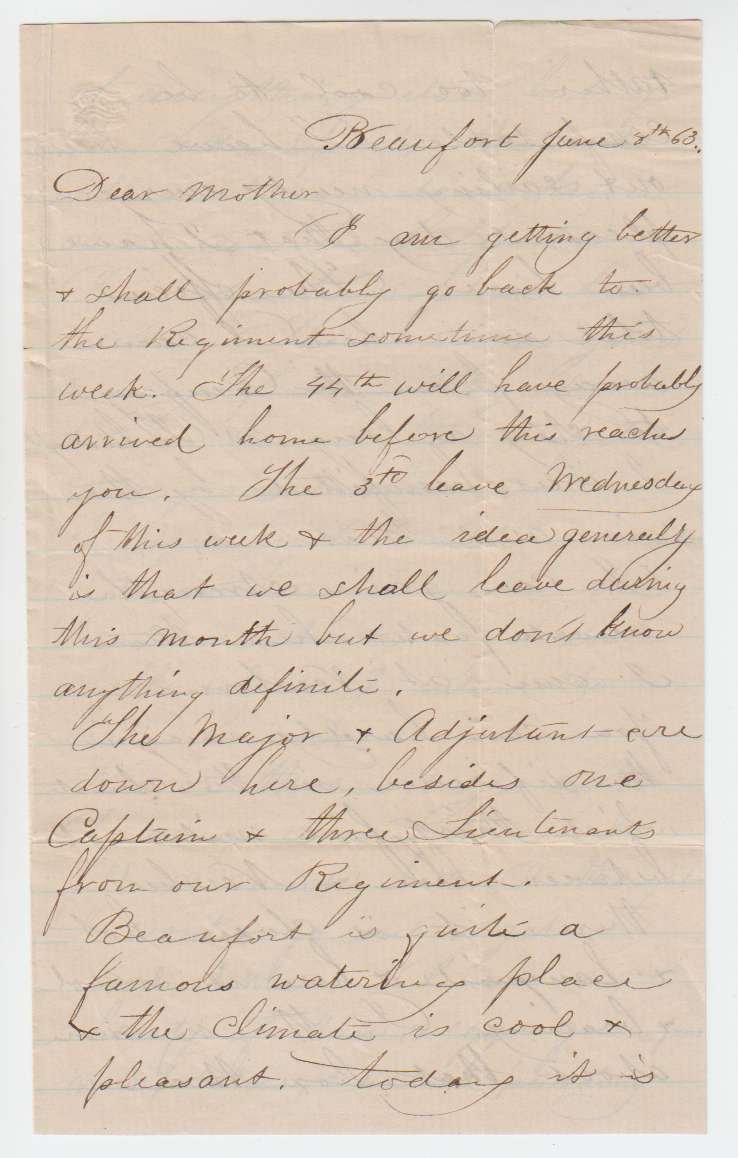 Beaufort June 8th 63.
Dear Mother
I am getting better
& shall probably go back to
the Regiment sometime this
week. The 44th will have probably
arrived home before this reaches
you. The 3rd leave Wednesday
of this week & the idea generally
is that we shall leave during
this month but we don't know
anything definite.
The Major & Adjutant are
down here, besides one
Captain & three Lieutenants
from our Regiment.
Beaufort is quite a
famous watering place
& the climate is cool &
pleasant. today it is